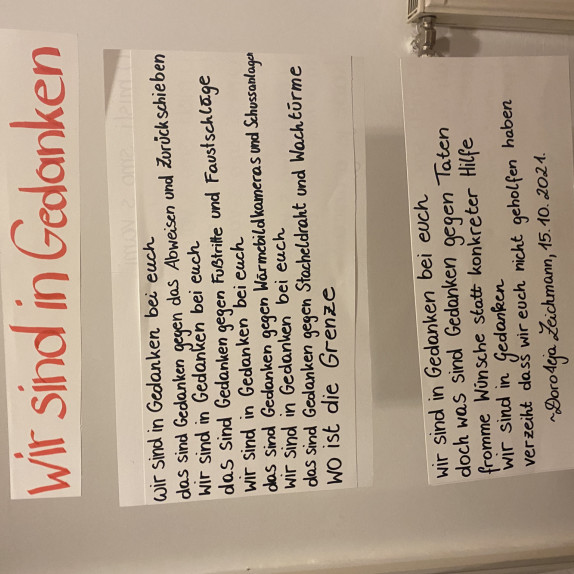 Wir sind in Gedanken
wir sind in Gedanken bei euch
das sind Gedanken gegen das Abweisen und Zurückschieben
wir sind in Gedanken bei euch
das sind Gedanken gegen Fußtritte und Faustschläge
wir sind in Gedanken bei euch
das sind Gedanken gegen Wärmebildkameras und Schussanlagen
wir sind in Gedanken bei euch
das sind Gedanken gegen Stacheldraht und Wachtürme
WO ist die Grenze
wir sind in Gedanken bei euch
doch was sind Gedanken gegen Taten
fromme Wünsche statt konkreter Hilfe
wir sind in Gedanken
verzeiht dass wir euch nicht geholfen haben
~Doroteja Zeichmann, 15.10.2021.